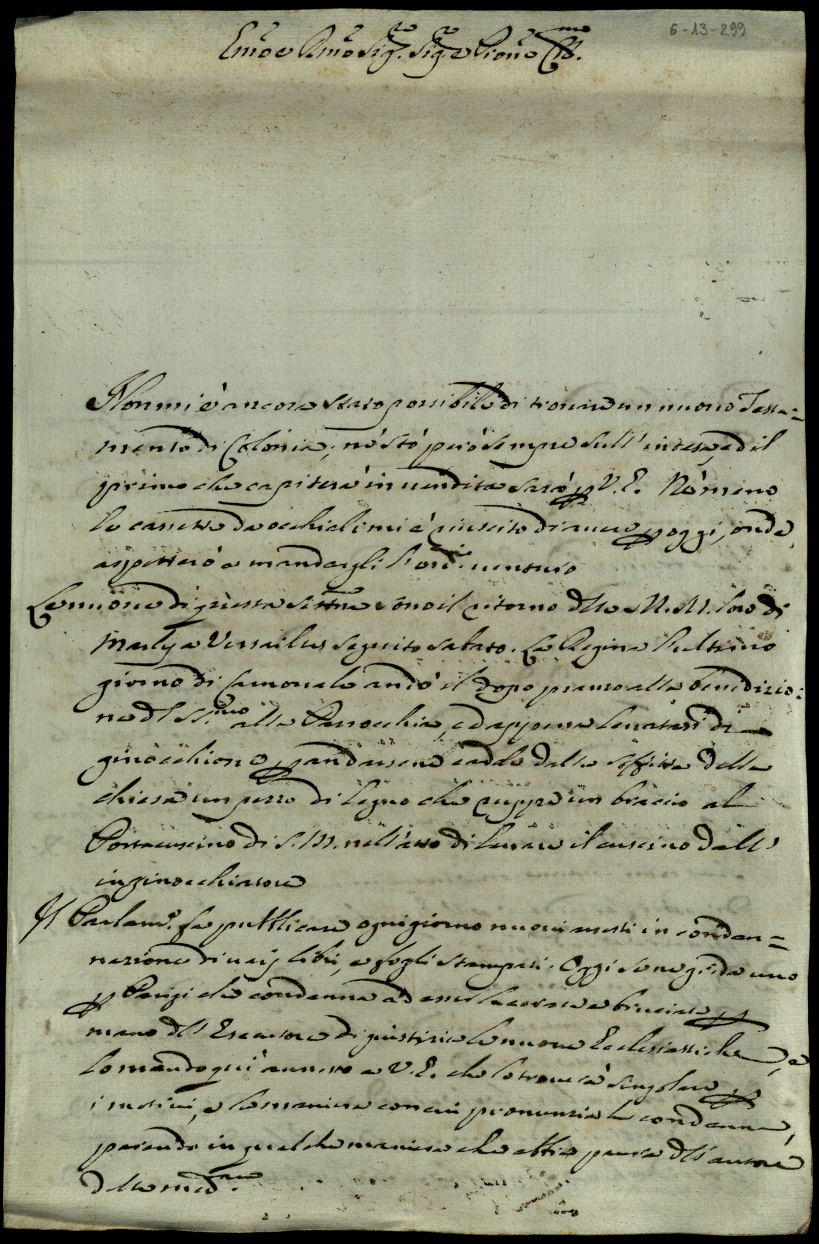 6-13-299
Emo e Rmo Sig.re Sig.re e Prone Colmo.
Non mi è ancora stato possibile di trovare un nuovo Testa=
mento di Colonia; nè stò però sempre sull' intesa, ed il
primo che capiterà in vendita sarà p V. E. Nè meno
le cassette da occhiali mi è riuscito di avere p oggi, onde
aspetterò a mandargli l' ord.o venturo
Le nuove di questa settna sono il ritorno delle M. M. loro di
Marly a Versailles seguito sabato. La Regina l'ultimo
giorno di Carnovale andò il dopo pranzo alla benedizio:
ne del SSmo alla Parrocchia, ed appena levatasi di
ginocchione, p andarsene cadde dalla soffitta della
chiesa un pezzo di legno che ruppe un braccio al
Portacuscino di S. M. nell' atto di levare il cuscino dall'
inginocchiatore
Il Parlamo. fa pubblicare ogni giorno nuovi arresti in condan=
nazione di varj libri, e fogli stampati. Oggi se ne grida uno
p Parigi che condanna ad esser lacerate e bruciate p
mano dell' Esecutore di giustizia le nuove Ecclesiastiche, e
lo mando quì annesso a V. E. che lo troverà singolare p
i motivi, e la maniera con cui pronunzia la condanna,
parendo in qualche maniera che abbia paura dell' autore
delle medme.